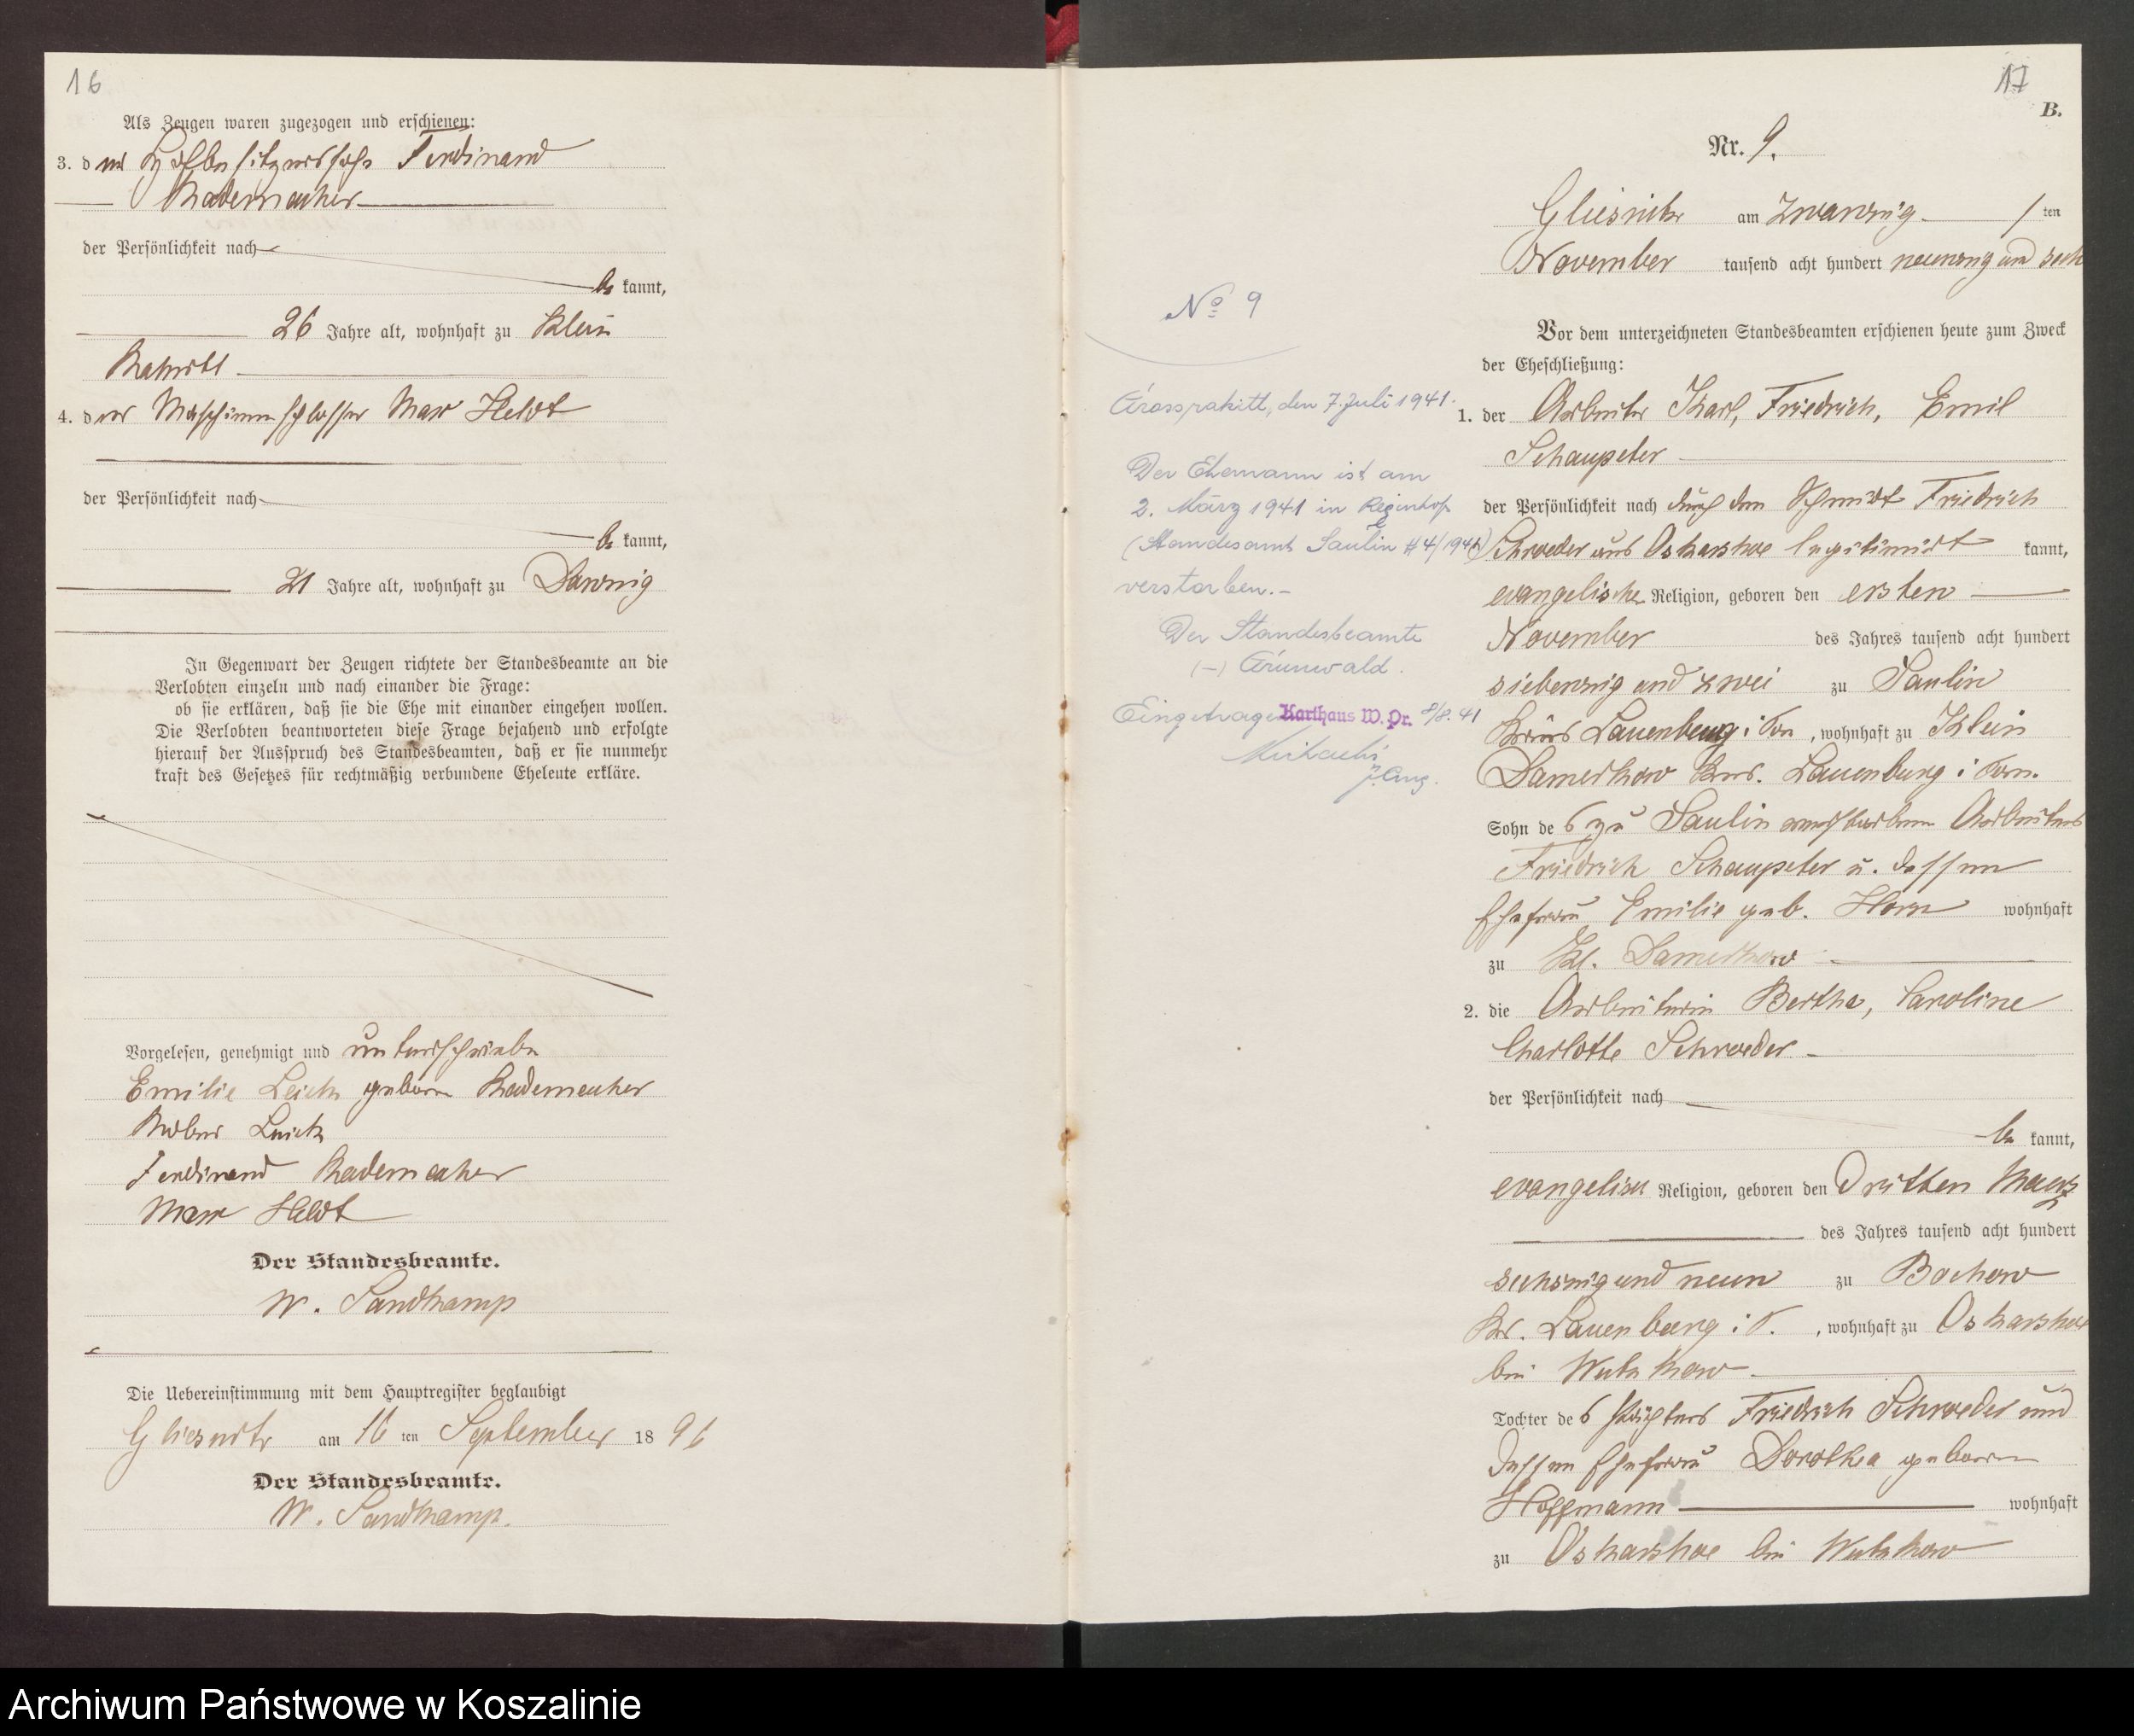 16
Als Zeugen waren zugezogen und erschienen:
3. der Hofbesitzerssohn Ferdinand
Rademacher
der Persönlichkeit nach
be kannt,
26 Jahre alt, wohnhaft zu Klein
4. der Maschinenschlosser Max Heldt
der Persönlichkeit nach
be kannt,
21 Jahre alt, wohnhaft zu Danzig
In Gegenwart der Zeugen richtete der Standesbeamte an die
Verlobten einzeln und nach einander die Frage:
ob sie erklären, daß sie die Ehe mit einander eingehen wollen.
Die Verlobten beantworteten diese Frage bejahend und erfolgte
hierauf der Ausspruch des Standesbeamten, daß er sie nunmehr
kraft des Gesetzes für rechtmäßig verbundene Eheleute erkläre.
Vorgelesen, genehmigt und unterschrieben
Emilie Leick geboren Rademacher
Leick
Ferdinand Rademacher
Max Heldt
Der Standesbeamte.
W. Sandkamp
Die Uebereinstimmung mit dem Hauptregister beglaubigt
Gliesnitz am 16 ten September 18 96
Der Standesbeamte.
W. Sandkamp.
17
B.
Nr. 9.
Gliesnitz am zwanzig ten
November tausend acht hundert neunzig und sech
Vor dem unterzeichneten Standesbeamten erschienen heute zum Zweck
der Eheschließung:
1. der Arbeiter Karl, Friedrich, Emil
Schaupeter
der Persönlichkeit nach durch den Schmidt Friedrich
Schroeder aus Oskarshoe legitimirt kannt,
evangelischer Religion, geboren den ersten
November des Jahres tausend acht hundert
siebenzig und zwei zu Saulin
Kreis Lauenburg i Pom , wohnhaft zu Klein
Damerkow Kreis. Lauenburg i Pom.
Sohn des zu Saulin verstorbenen Arbeiters
Friedrich Schaupeter u. dessen
Ehefrau Emilie geb. Horn wohnhaft
zu Kl. Damerkow
2. die Arbeiterin Bertha, Caroline
Charlotte Schroeder
der Persönlichkeit nach
be kannt,
evangelisch Religion, geboren den Dritten Maerz
des Jahres tausend acht hundert
sechszig und neun zu Bochow
Kr. Lauenburg i. P. , wohnhaft zu Oskarshoe
bei Wutzkow
Tochter des Pächters Friedrich Schroeder und
dessen Ehefrau Dorothea geboren
Hoffmann wohnhaft
zu Oskarshoe bei Wutzkow
No 9
Grossrakitt, den 7. Juli 1941.
Der Ehemann ist am
2. März 1941 in
(Standesamt Saulin # 4/1941)
verstorben.-
Der Standesbeamte
(-) Grunwald.
Eingetragen Karthaus W. Pr. 8/8. 41
J. Ang.
Archiwum Państwowe w Koszalinie